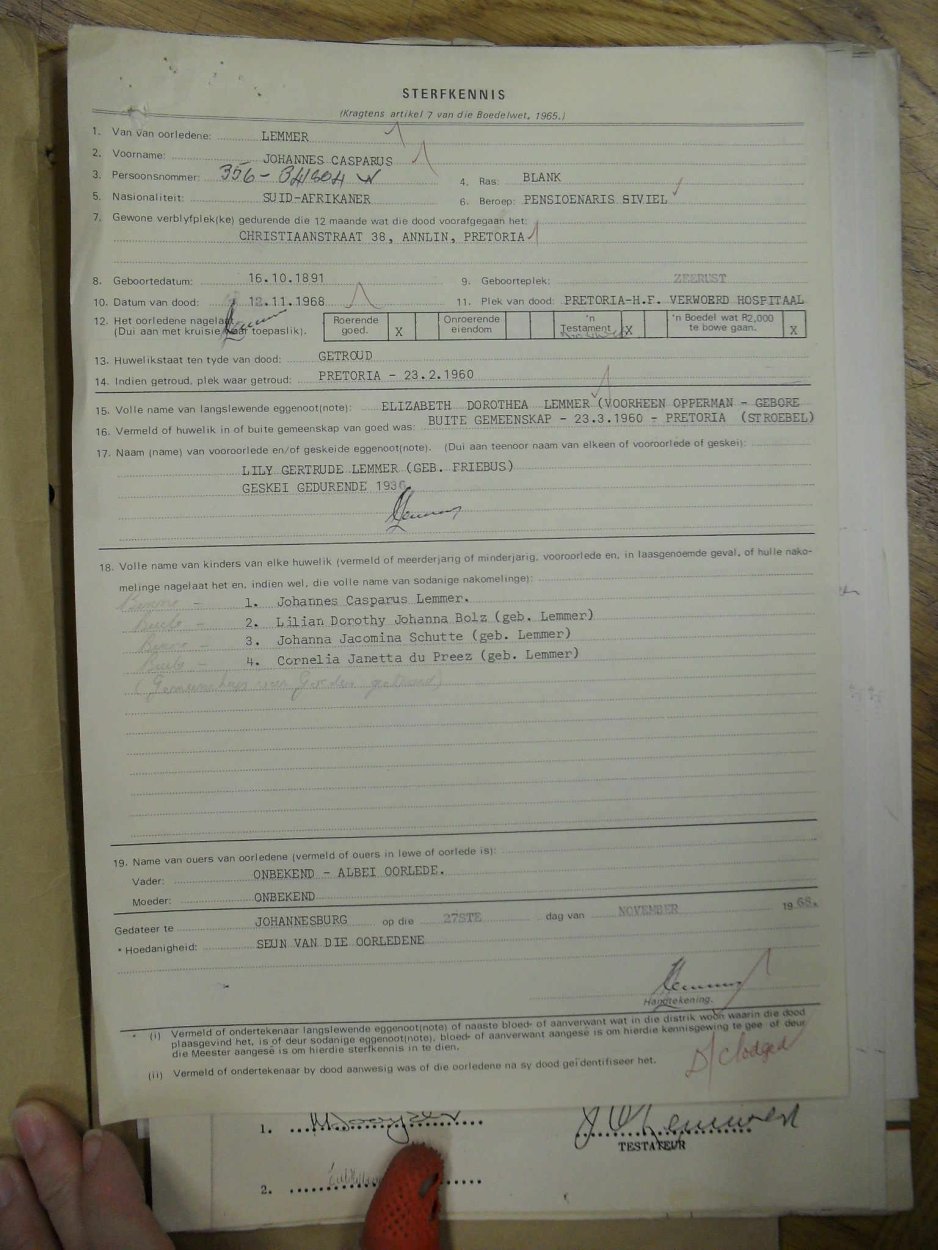 STERFKENNIS
(Kragtens artikel 7 van die Boedelwet, 1965.)
1. Van van oorledene: LEMMER
2. Voorname: JOHANNES CASPARUS
3. Persoonsnommer: 356- 841804 W
4. Ras: BLANK
5. Nasionaliteit: SUID-AFRIKANER
6. Beroep: PENSIOENARIS SIVIEL
7. Gewone verblyfplek(ke) gedurende die 12 maande wat die dood voorafgegaan het:
CHRISTIAANSTRAAT 38, ANNLIN, PRETORIA
8. Geboortedatum: 16.10.1891
9. Geboorteplek: ZEERUST
10. Datum van dood: 12.11.1968
11. Plek van dood: PRETORIA-H.F. VERWOERD HOSPITAAL
12. Het oorledene nagelaat
(Dui aan met kruisie waar toepaslik).
Roerende goed. X
Onroerende eiendom
'n Testament X
'n Boedel wat R2,000 te bowe gaan. X
13. Huwelikstaat ten tyde van dood: GETROUD
14. Indien getroud, plek waar getroud: PRETORIA - 23.2.1960
15. Volle name van langslewende eggenoot(note): ELIZABETH DOROTHEA LEMMER (VOORHEEN OPPERMAN - GEBORE
16. Vermeld of huwelik in of buite gemeenskap van goed was: BUITE GEMEENSKAP - 23.3.1960 - PRETORIA (STROEBEL)
17. Naam (name) van vooroorlede en/of geskeide eggenoot(note). (Dui aan teenoor naam van elkeen of vooroorlede of geskei):
LILY GERTRUDE LEMMER (GEB. FRIEBUS)
GESKEI GEDURENDE 1936
Lemmer
18. Volle name van kinders van elke huwelik (vermeld of meerderjarig of minderjarig, vooroorlede en, in laasgenoemde geval, of hulle nako-
melinge nagelaat het en, indien wel, die volle name van sodanige nakomelinge):
1. Johannes Casparus Lemmer.
2. Lilian Dorothy Johanna Bolz (geb. Lemmer)
3. Johanna Jacomina Schutte (geb. Lemmer)
4. Cornelia Janetta du Preez (geb. Lemmer)
19. Name van ouers van oorledene (vermeld of ouers in lewe of oorlede is):
Vader: ONBEKEND - ALBEI OORLEDE.
Moeder: ONBEKEND
Gedateer te JOHANNESBURG op die 27STE dag van NOVEMBER 1968.
* Hoedanigheid: SEUN VAN DIE OORLEDENE
Lemmer
Handtekening.
* (i) Vermeld of ondertekenaar langslewende eggenoot(note) of naaste bloed- of aanverwant wat in die distrik woon waarin die dood
plaasgevind het, is of deur sodanige eggenoot(note), bloed- of aanverwant aangesê is om hierdie kennisgewing te gee of deur
die Meester aangesê is om hierdie sterfkennis in te dien.
(ii) Vermeld of ondertekenaar by dood aanwesig was of die oorledene na sy dood geïdentifiseer het.
D/C lodged
1.
TESTATEUR
2.